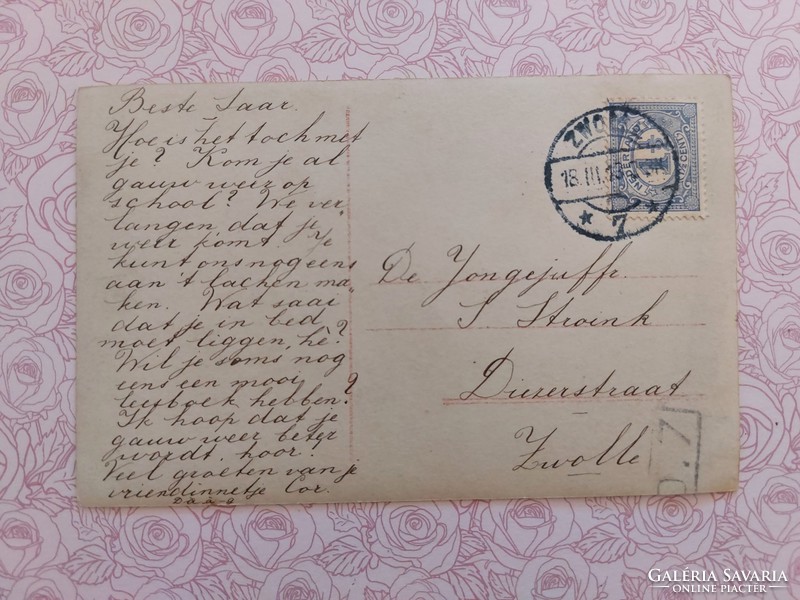 Beste Saar.
Hoe is het toch met
je? Kom je al
gauw weer op
school? We ver
langen, dat je
weer komt. Je
kunt ons nog eens
aan 't lachen ma-
ken. Wat saai
dat je in bed
moet liggen, hè?
Wil je soms nog
eens een mooi
leesboek hebben?
Ik hoop dat je
gauw weer beter
wordt, hoor!
Veel groeten van je
vriendinnetje Cor.
Daag
ZWOLLE
18.III.
7
NEDERLAND
De Jongejuffr
S. Stroink
Diezerstraat
Zwolle
GALÉRIA SAVARIA
ONLINE PIACTÉR